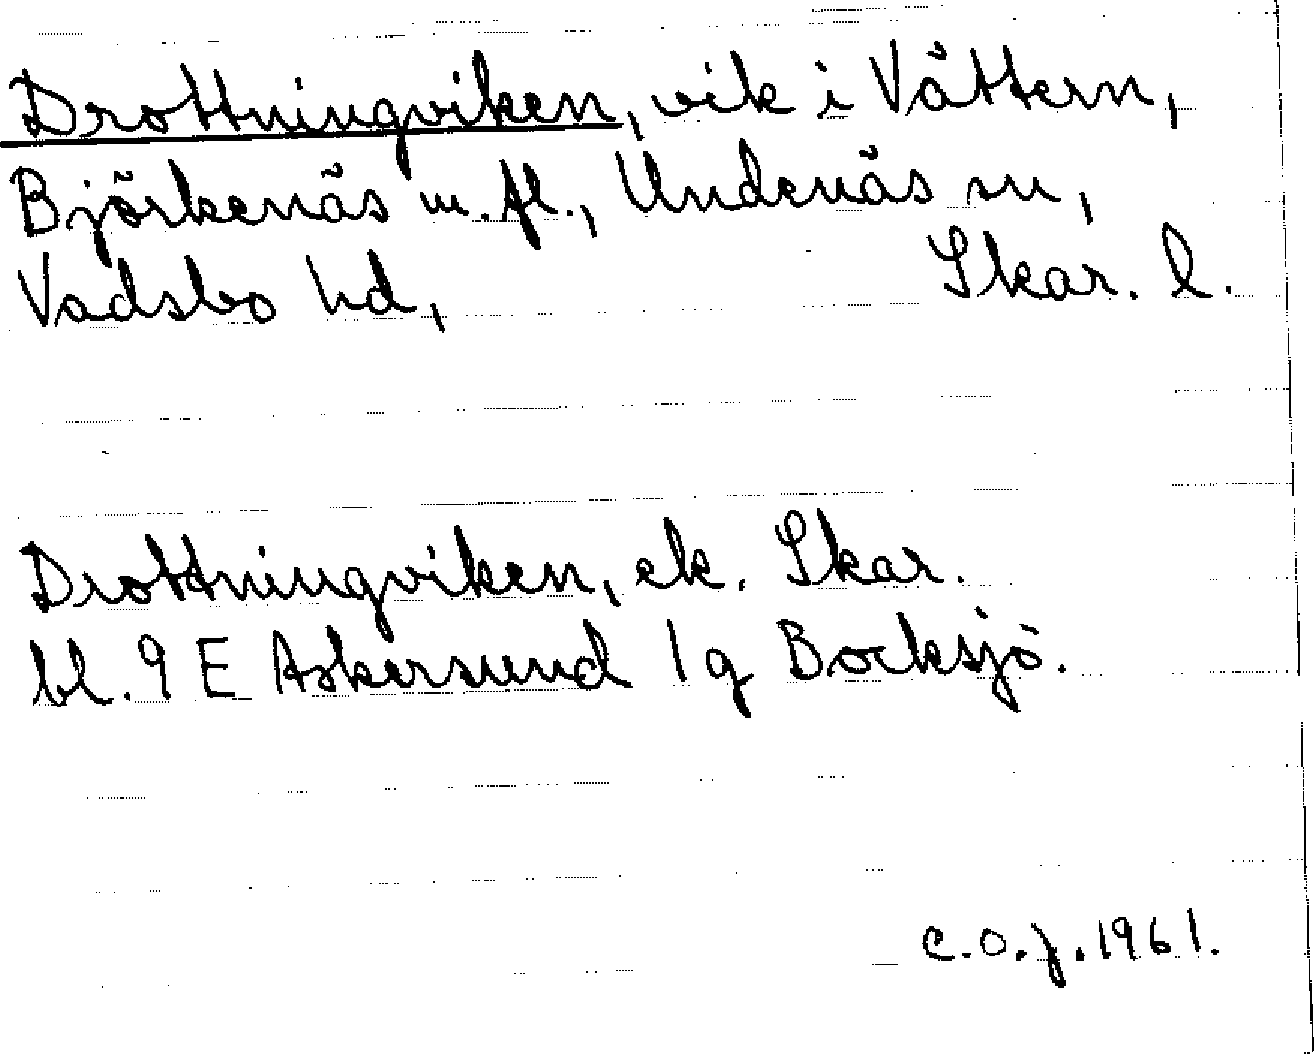 Drottningviken, vik i Vättern,
Björkenäs m. fl., Undenäs sn,
Vadsbo hd, Skar. l.
Drottningviken, ek. Skar.
bl. 9 E Askersund 1g Bocksjö.
C.O.J. 1961.